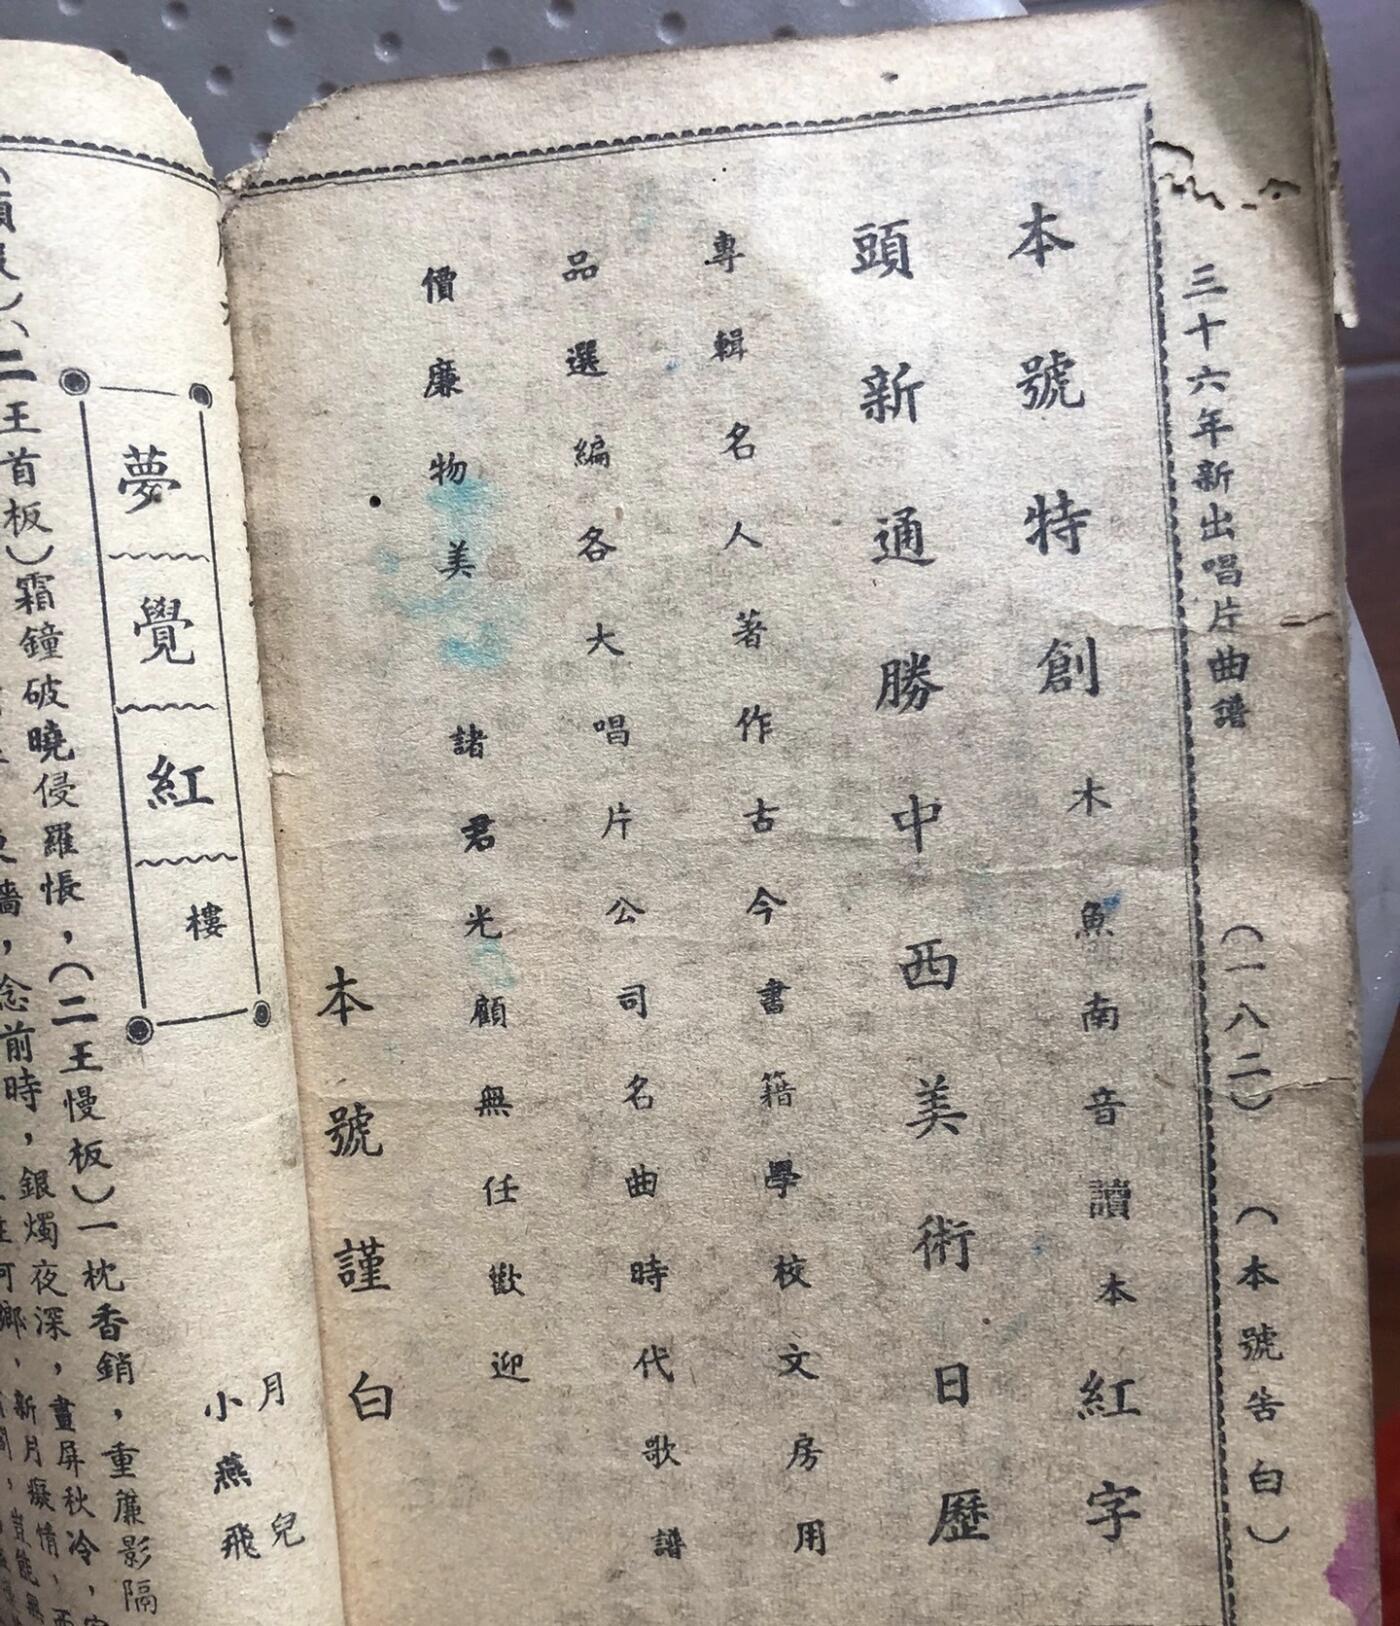 三十六年新出唱片曲譜 (一八二) (本號告白)
本號特創木魚南音讀本紅字
頭新通勝中西美術日歷
專輯名人著作古今書籍學校文房用
品選編各大唱片公司名曲時代歌譜
價廉物美 諸君光顧無任歡迎
本號謹白
月兒
小燕飛
夢覺紅樓
一枕香銷,重簾影隔
王首板)霜鐘破曉侵羅悵,(二王慢板)
前時,銀燭夜深,畫屏秋冷,
新月癡情,